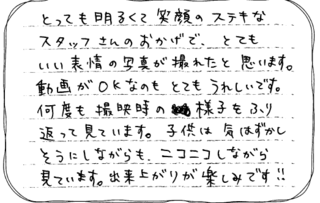 とっても明るくて笑顔のステキな
スタッフさんのおかげで、とても
いい表情の写真が撮れたと思います。
動画がOKなのもとてもうれしいです。
何度も撮映時の様子をふり
返って見ています。子供は気はずかし
そうにしながらも、ニコニコしながら
見ています。出来上がりが楽しみです!!